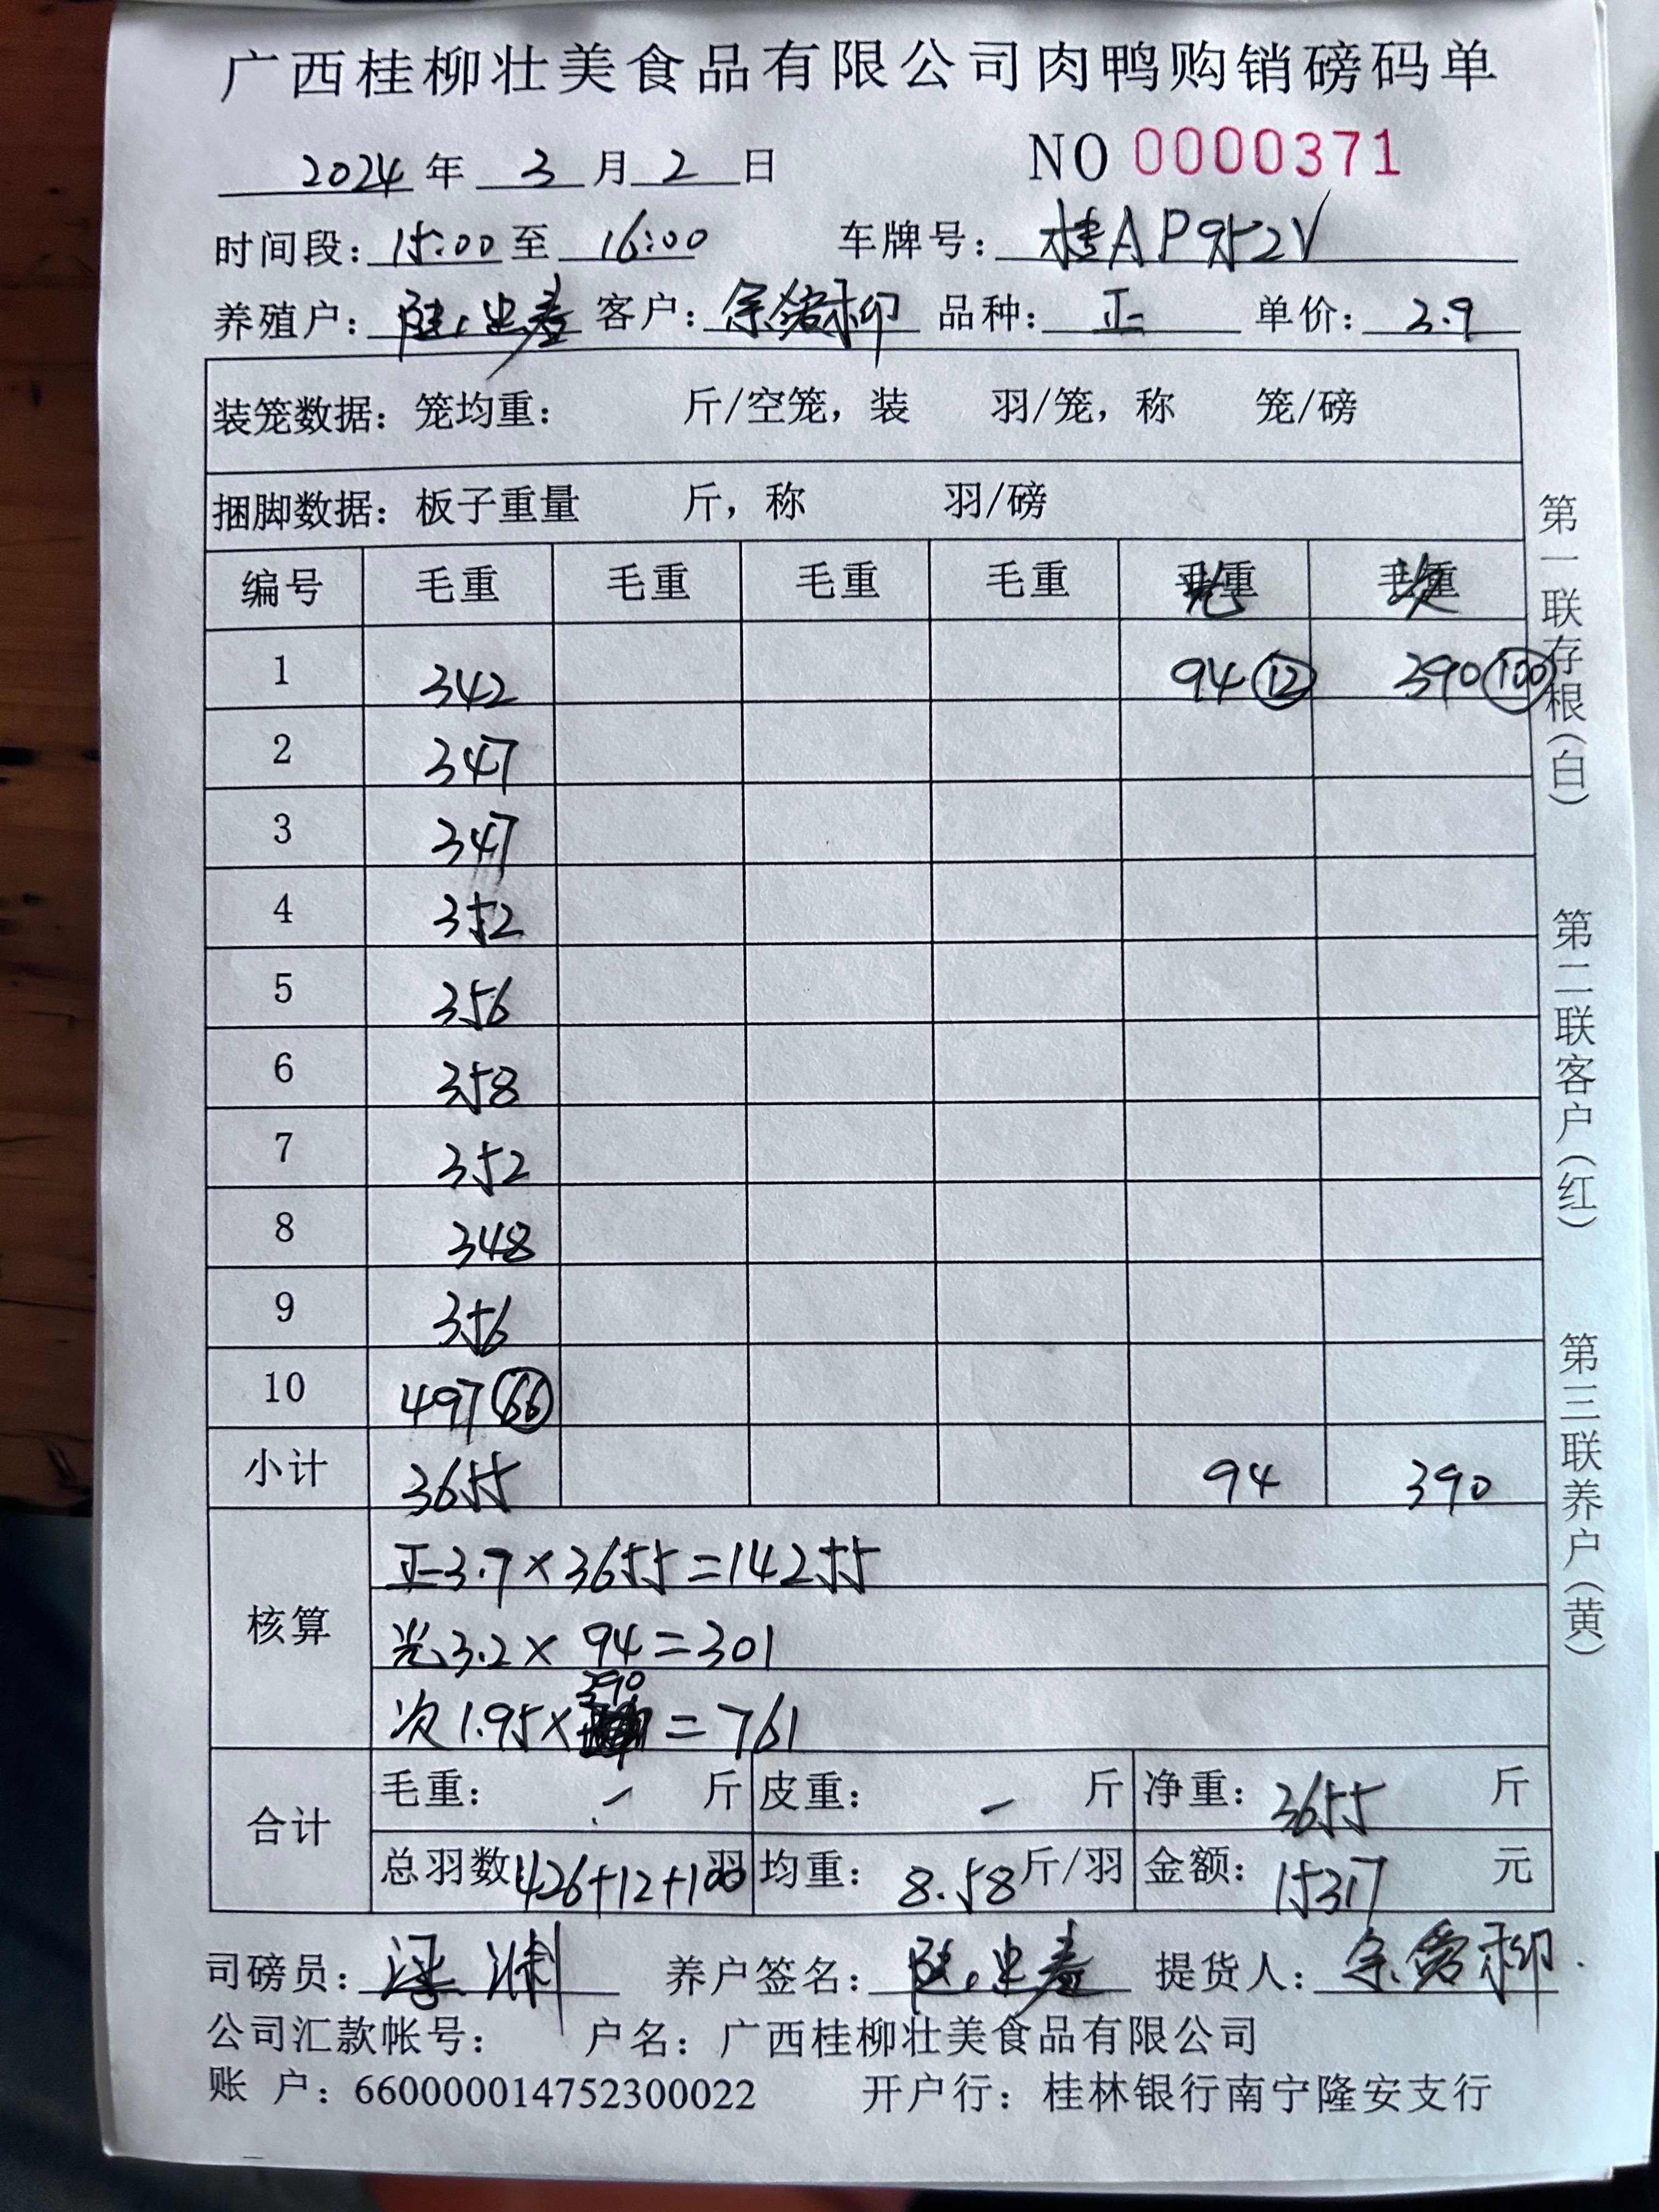 广西桂柳壮美食品有限公司肉鸭购销磅码单
2024 年 3 月 2 日 NO 0000371
时间段: 15:00 至 16:00 车牌号: 桂AP952V
养殖户: 陆 客户: 余 柳 品种: 正 单价: 3.9
装笼数据: 笼均重: 斤/空笼, 装 羽/笼, 称 笼/磅
捆脚数据: 板子重量 斤, 称 羽/磅
编号 毛重 毛重 毛重 毛重 光 次
1 342 94 ⑫ 390 100
2 347
3 347
4 352
5 356
6 358
7 352
8 348
9 356
10 497 66
小计 3655 94 390
核算
正 3.9×3655=14255
光 3.2× 94=301
次 1.95×390=761
合计
毛重: - 斤 皮重: - 斤 净重: 3655 斤
总羽数 426+12+100 羽 均重: 8.58 斤/羽 金额: 15317 元
司磅员: 养户签名: 陆 提货人: 余 柳
公司汇款帐号: 户名: 广西桂柳壮美食品有限公司
账 户: 660000014752300022 开户行: 桂林银行南宁隆安支行
第一联存根(白) 第二联客户(红) 第三联养户(黄)